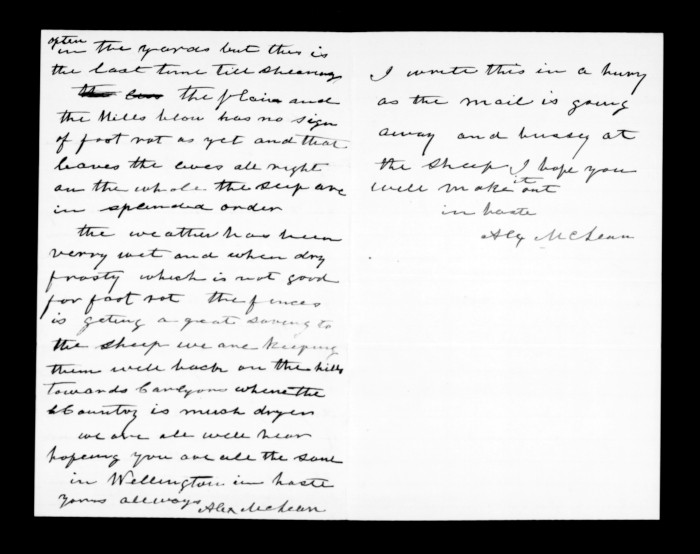 often
in the yards but this is
the last time till shearing
the plain and
the Hills below has no sign
of foot rot as yet and that
leaves the ewes all right
on the whole the seep are
in splended order
the weather has been
verry wet and when dry
frosty which is not good
for foot rot the fences
is geting a great saving to
the sheep we are keeping
them well back on the hills
towards Carlyons where the
Country is mush dryer
we are all well hear
hopeing you are all the same
in Wellington in haste
yours allways
Alex McLean
I wrote this in a hury
as the mail is going
away and bussy at
the sheep I hope you
well make it out
in haste
Alex McLean